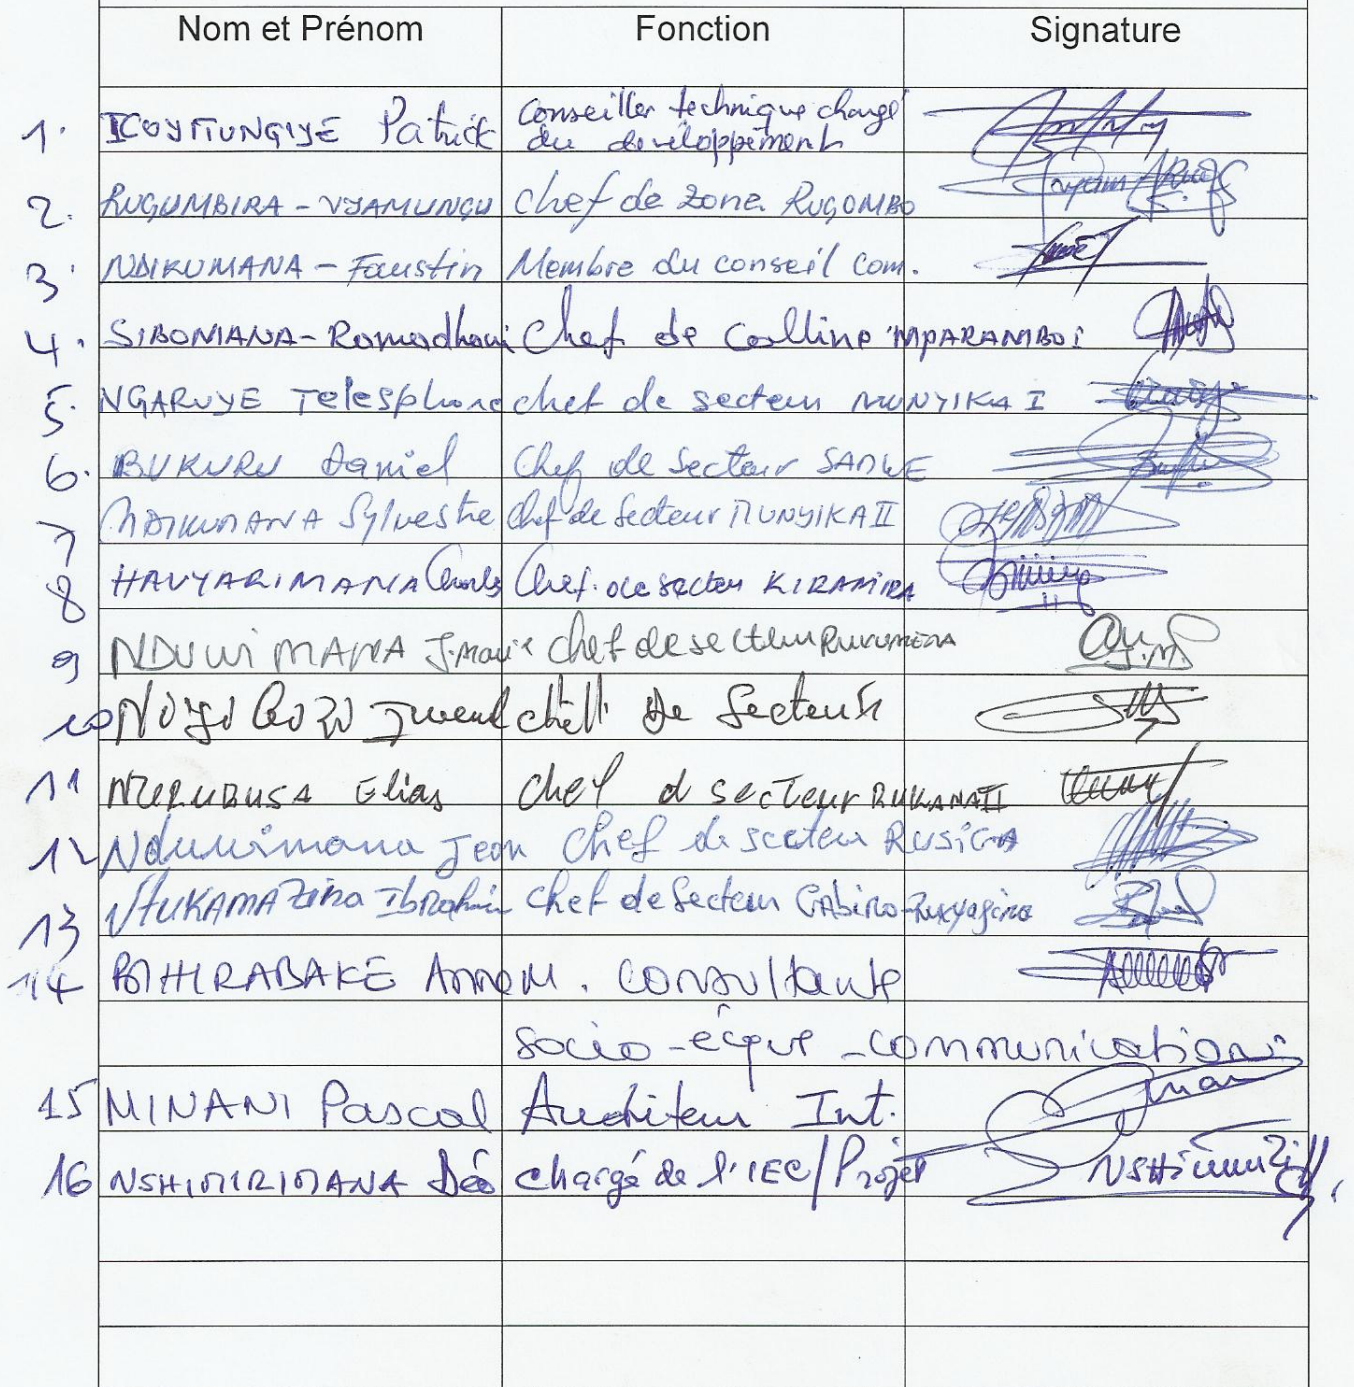 Nom et Prénom Fonction Signature
Conseiller technique chargé
1. ICOYITUNGIYE Patrick du développement
2. RUGUMBIRA - VYAMUNGU chef de zone RUGOMBO
3. NDIKUMANA - Faustin Membre du conseil com.
4. SIBOMANA - Ramadhani Chef de Colline MPARAMBO I
5. NGARUYE Telesphore chef de secteur MUNYIKA I
6. BUKURU Daniel Chef de Secteur
7 NDIKUMANA Sylvestre Chef de Secteur MUNYIKA II
8 HAVYARIMANA Charles Chef de secteur KIRAMIRA
9 NDUWIMANA J.Marie chef de secteur
10 chef de Secteur
11 Elias chef d secteur RUKANA II
12 Nduwimana Jean Chef de secteur RUSIGA
13 Ibrahim chef de Secteur
14 Anne M. Consultante
Socio-éque - communication
15 MINANI Pascal Auditeur Int.
16 NSHIMIRIMANA Déo chargé de l'IEC/Projet